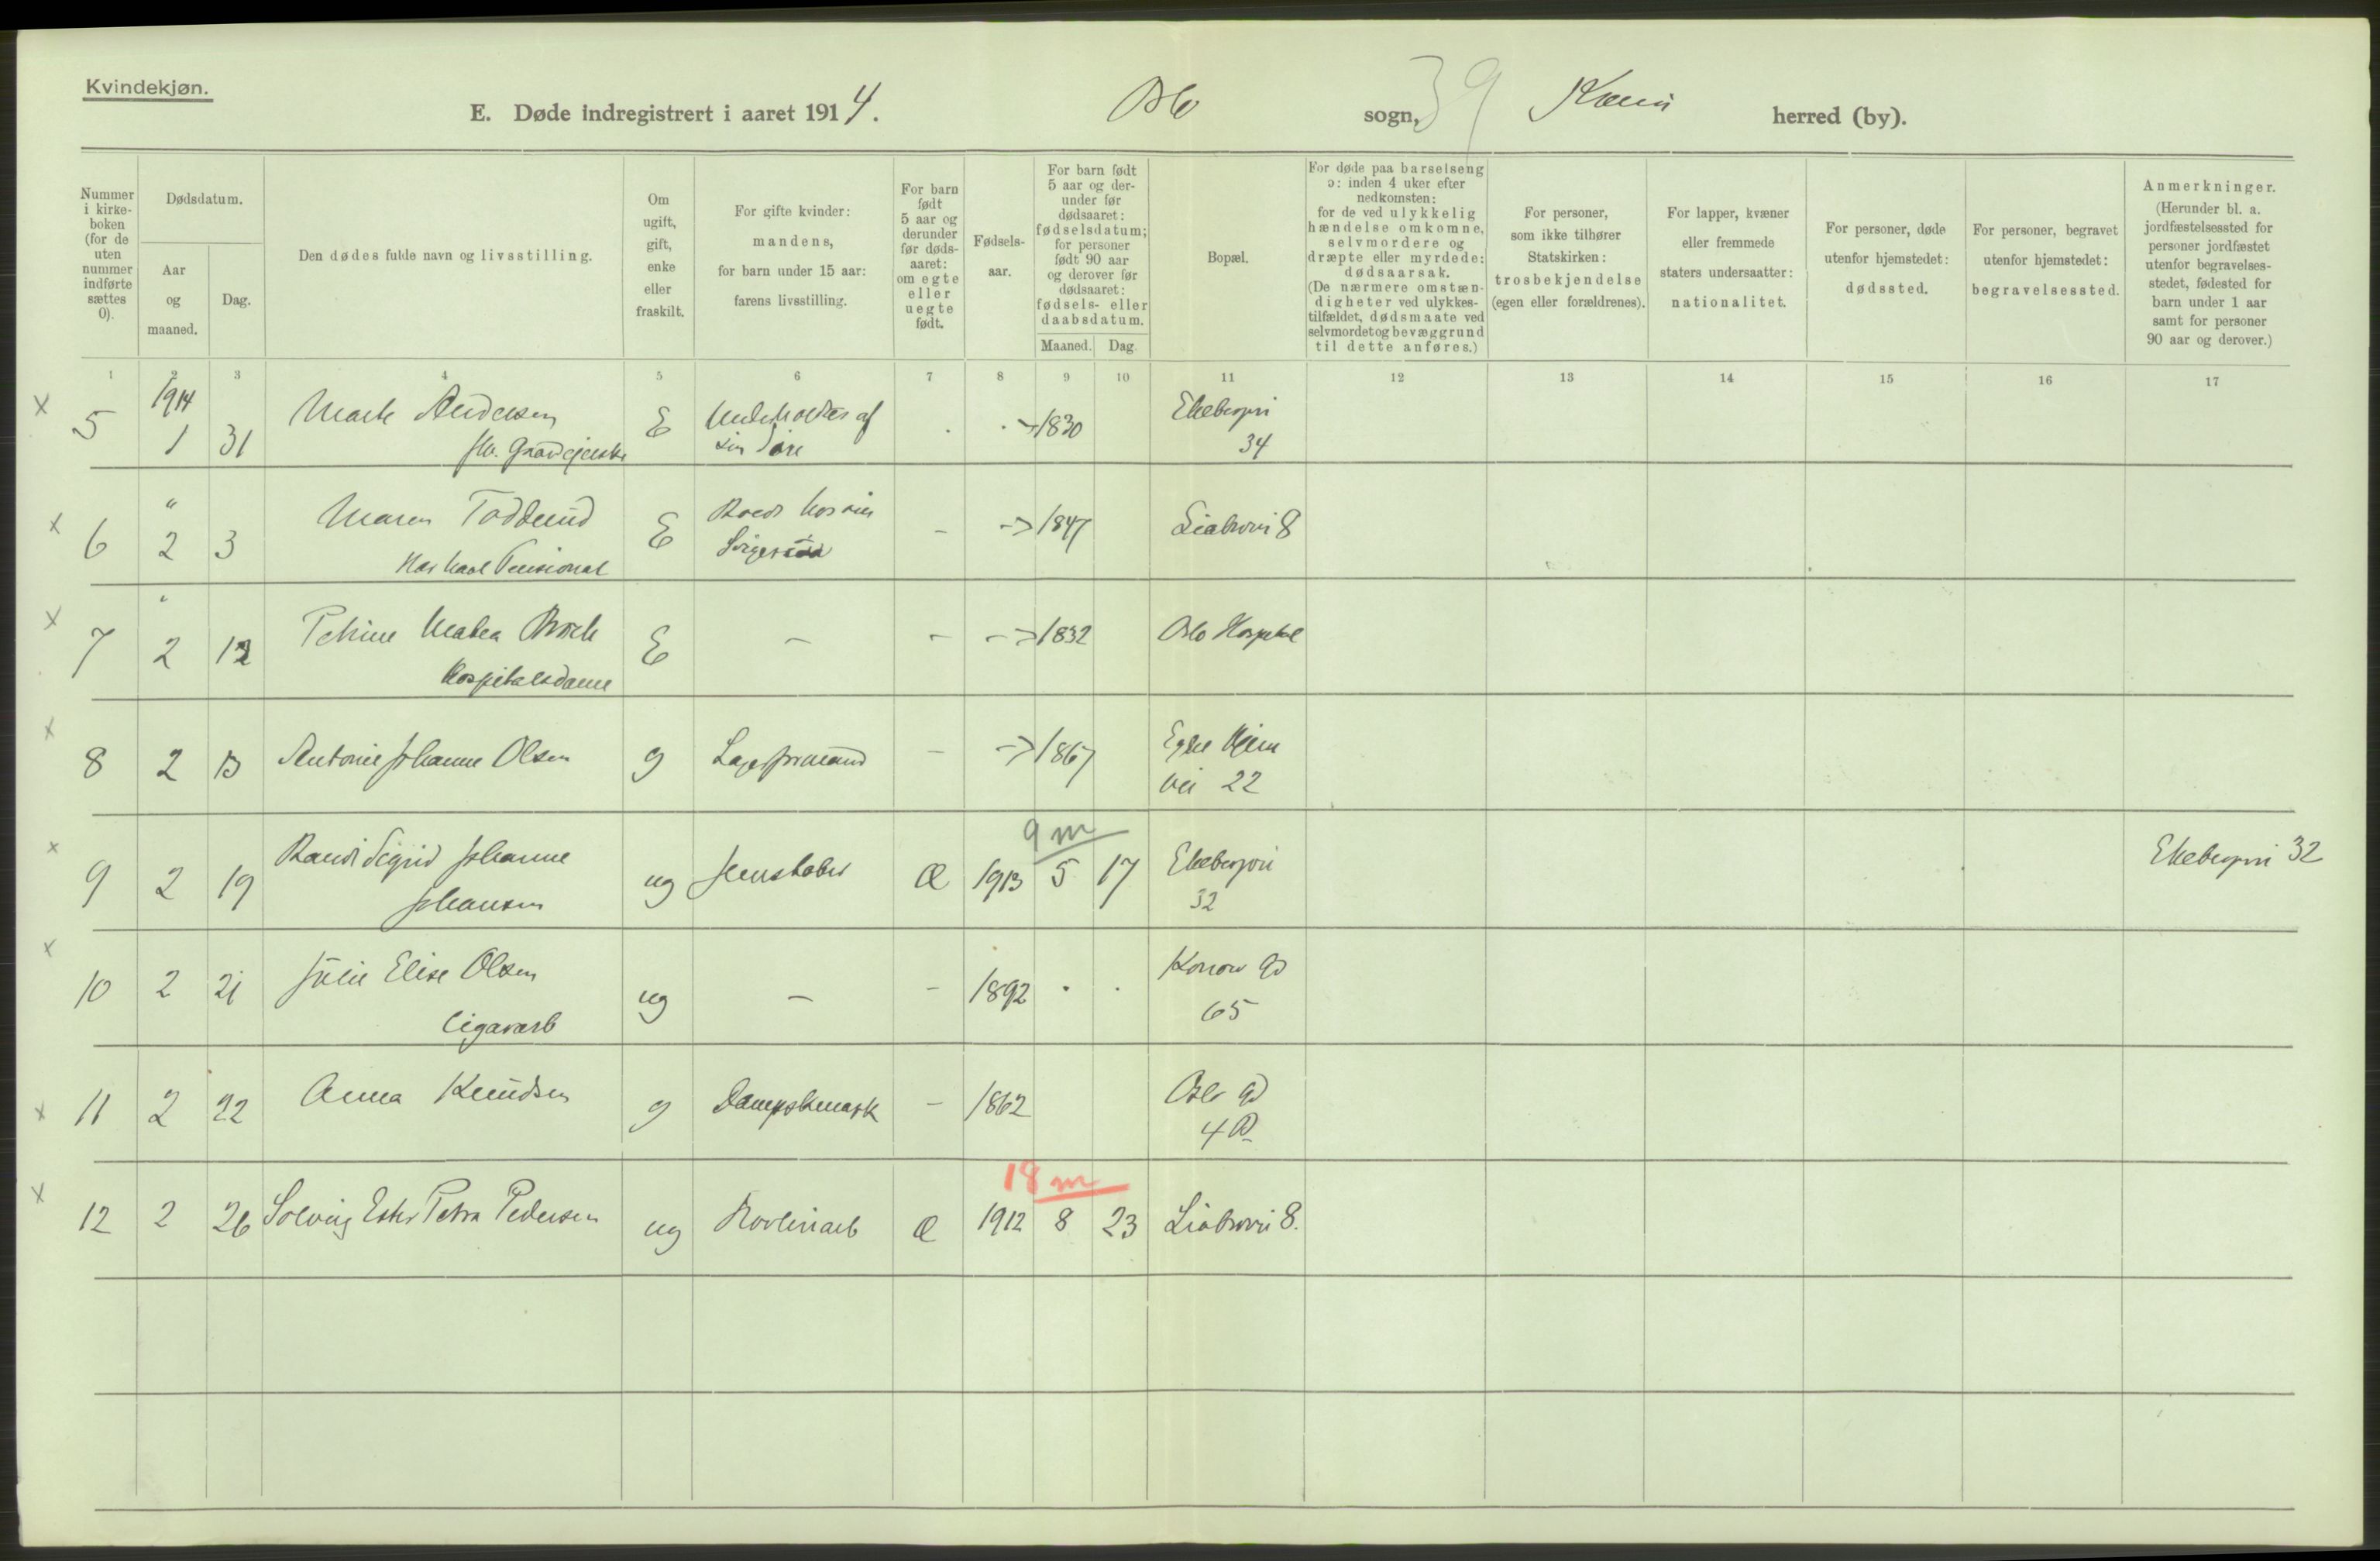 Kvindekjøn.
E. Døde indregistrert i aaret 1914. Oslo sogn, 39 herred (by).
Nummer i kirke-
boken
(for de
uten
nummer
indførte
sættes
0).
Dødsdatum.
Aar
og
maaned.
Dag.
Den dødes fulde navn og livsstilling.
Om
ugift,
gift,
enke
eller
fraskilt.
For gifte kvinder:
mandens,
for barn under 15 aar:
farens livsstilling.
For barn
født
5 aar og
derunder
før døds-
aaret:
om egte
eller
uegte
født.
Fødsels-
aar.
For barn født
5 aar og der-
under før
dødsaaret:
fødselsdatum;
for personer
født 90 aar
og derover før
dødsaaret:
fødsels- eller
daabsdatum.
Maaned. Dag.
Bopæl.
For døde paa barselseng
ɔ: inden 4 uker efter
nedkomsten:
for de ved ulykkelig
hændelse omkomne,
selvmordere og
dræpte eller myrdede:
dødsaarsak.
(De nærmere omstæn-
digheter ved ulykkes-
tilfældet, dødsmaate ved
selvmordet og bevæggrund
til dette anføres.)
For personer,
som ikke tilhører
Statskirken:
trosbekjendelse
(egen eller forældrenes).
For lapper, kvæner
eller fremmede
staters undersaatter:
nationalitet.
For personer, døde
utenfor hjemstedet:
dødssted.
For personer, begravet
utenfor hjemstedet:
begravelsessted.
Anmerkninger.
(Herunder bl. a.
jordfæstelsessted for
personer jordfæstet
utenfor begravelses-
stedet, fødested for
barn under 1 aar
samt for personer
90 aar og derover.)
1 2 3 4 5 6 7 8 9 10 11 12 13 14 15 16 17
x 5 1914 1 31 Andersen E af sin 1830 Ekebergvei
34
x 6 " 2 3 Maren E 1847 Liabrovei 8
x 7 " 2 12 Petrine Mathea E — — 1832 Oslo Hospital
Hospitalsdame
x 8 2 13 Antonie Johanne Olsen g Lagerformand — 1867 Hjem
vei 22
9 m
x 9 2 19 Randi Sigrid Johanne ug Æ 1913 5 17 Ekebergvei Ekebergvei 32
Johansen 32
x 10 2 21 Julie Elise Olsen ug — — 1892 . . Konow Gd
Cigararb 65
x 11 2 22 Anna Knudsen g Dampskmask — 1862 Oslo Gd
4 B
18 m
x 12 2 26 Solveig Ester Petra Pedersen ug Æ 1912 8 23 Liabrovei 8.